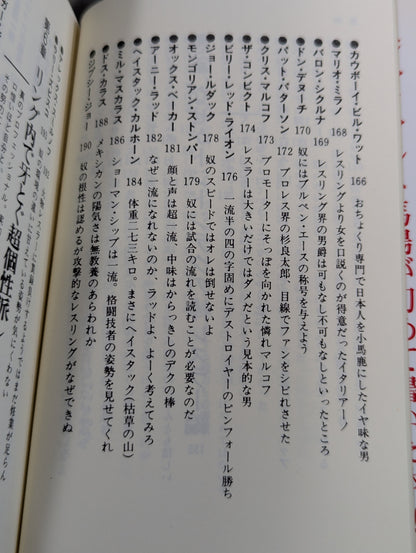 ●カウボーイ・ビル・ワット 166 おちょくり専門で日本人を小馬鹿にしたイヤ味な男
●マリオ・ミラノ 168 レスリングより女を口説くのが得意だったイタリアーノ
●バロン・シクルナ 169 レスリング界の男爵は可もなし不可もなしといったところ
●ドン・デヌーチ 170 奴にはブルペン・エースの称号を与えよう
●パット・パターソン 172 プロレス界の杉良太郎、目線でファンをシビれさせた
●クリス・マルコフ 173 プロモーターにそっぽを向かれた憐れマルコフ
●ザ・コンビクト 174 レスラーは大きいだけではダメだという見本的な男
●ビリー・レッド・ライオン 176 一流半の四の字固めにデストロイヤーのピンフォール勝ち
●ジョー・ルダック 178 奴のスピードではオレは倒せないよ
●モンゴリアン・ストンパー 179 奴には試合の流れを読むことが必要なのだ
●オックス・ベーカー 181 顔とは超一流。中味はからっきしのデクの棒
●アーニー・ラッド 182 なぜ一流になれないのか、ラッドよ、よーく考えてみろ
●ヘイスタック・カルホーン 184 体重二七三キロ。まさにヘイスタック(枯草の山)
●ミル・マスカラス 186 ショーマン・シップは一流。格闘技者の姿勢を見せてくれ
●ドス・カラス 188 メキシカンの陽気さは無教養のあらわれか
●ジプシー・ジョー 190 奴の根性は認めるが攻撃的なレスリングがなぜできぬ
リング内で牙とぐ超個性派